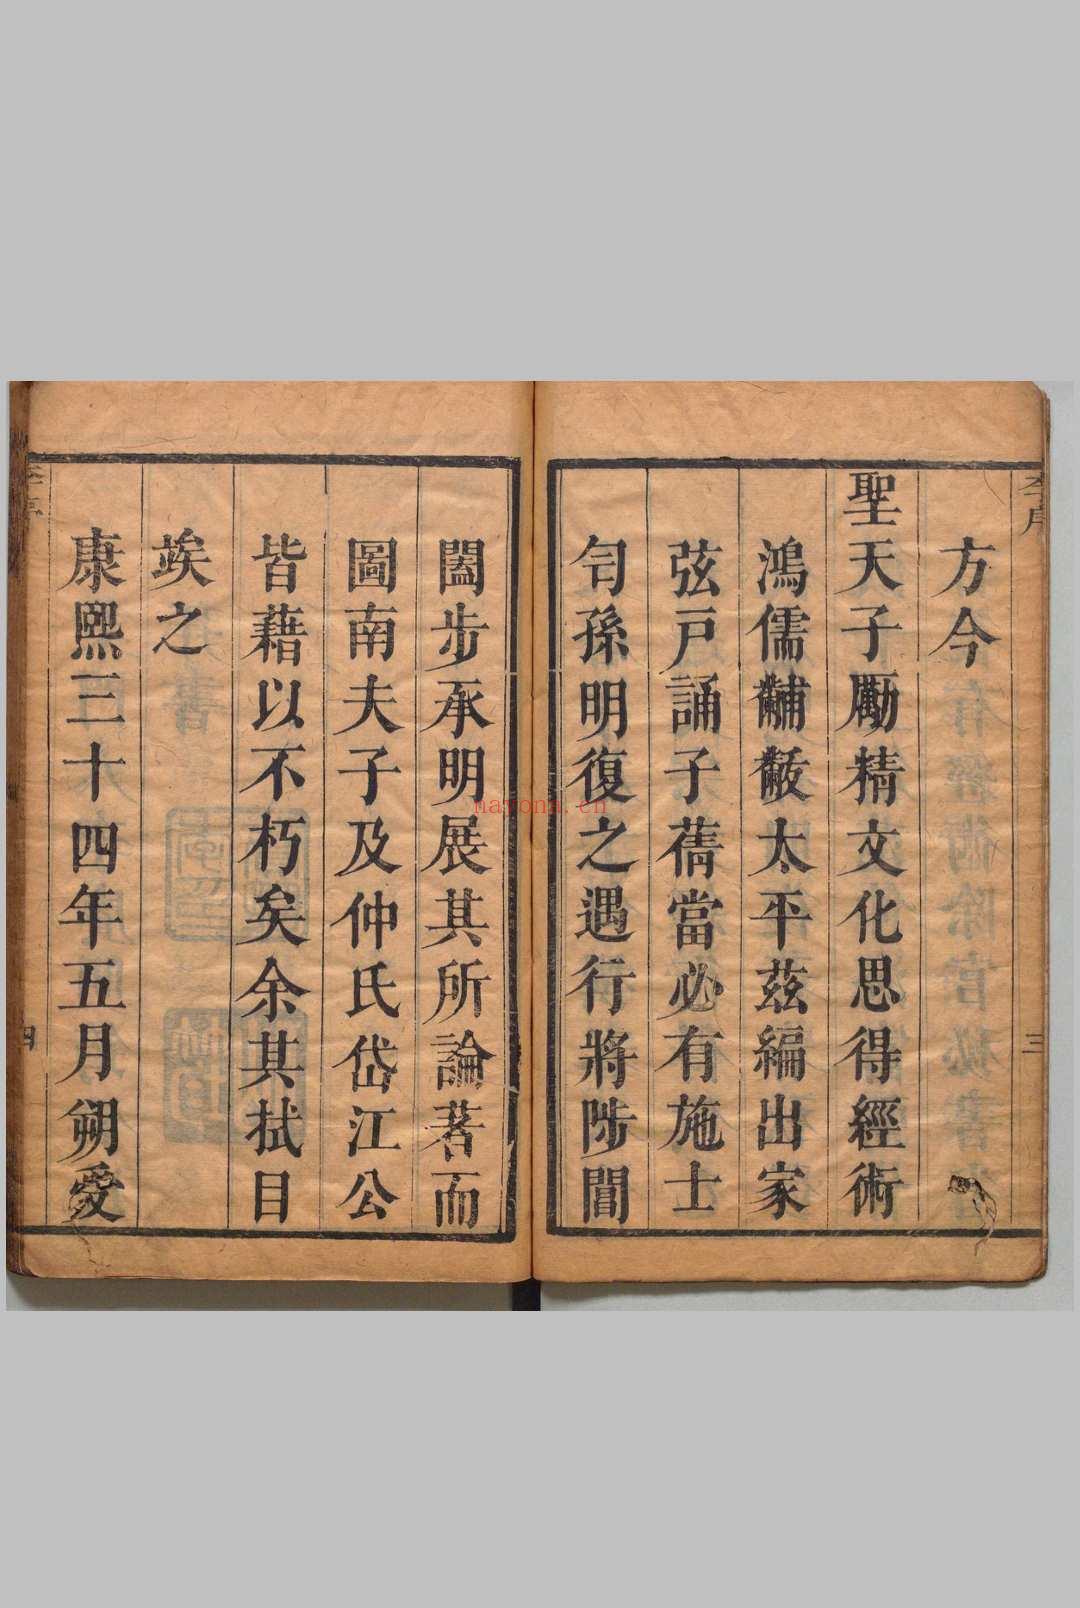 方今
聖天子勵精文化思得經術
鴻儒黼黻太平茲編出家
弦戶誦子蒨當必有施士
匄孫明復之遇行將陟閶
闔步承明展其所論著而
圖南夫子及仲氏岱江公
皆藉以不朽矣余其拭目
竢之
康熙三十四年五月朔愛
三
四
nayona.cn